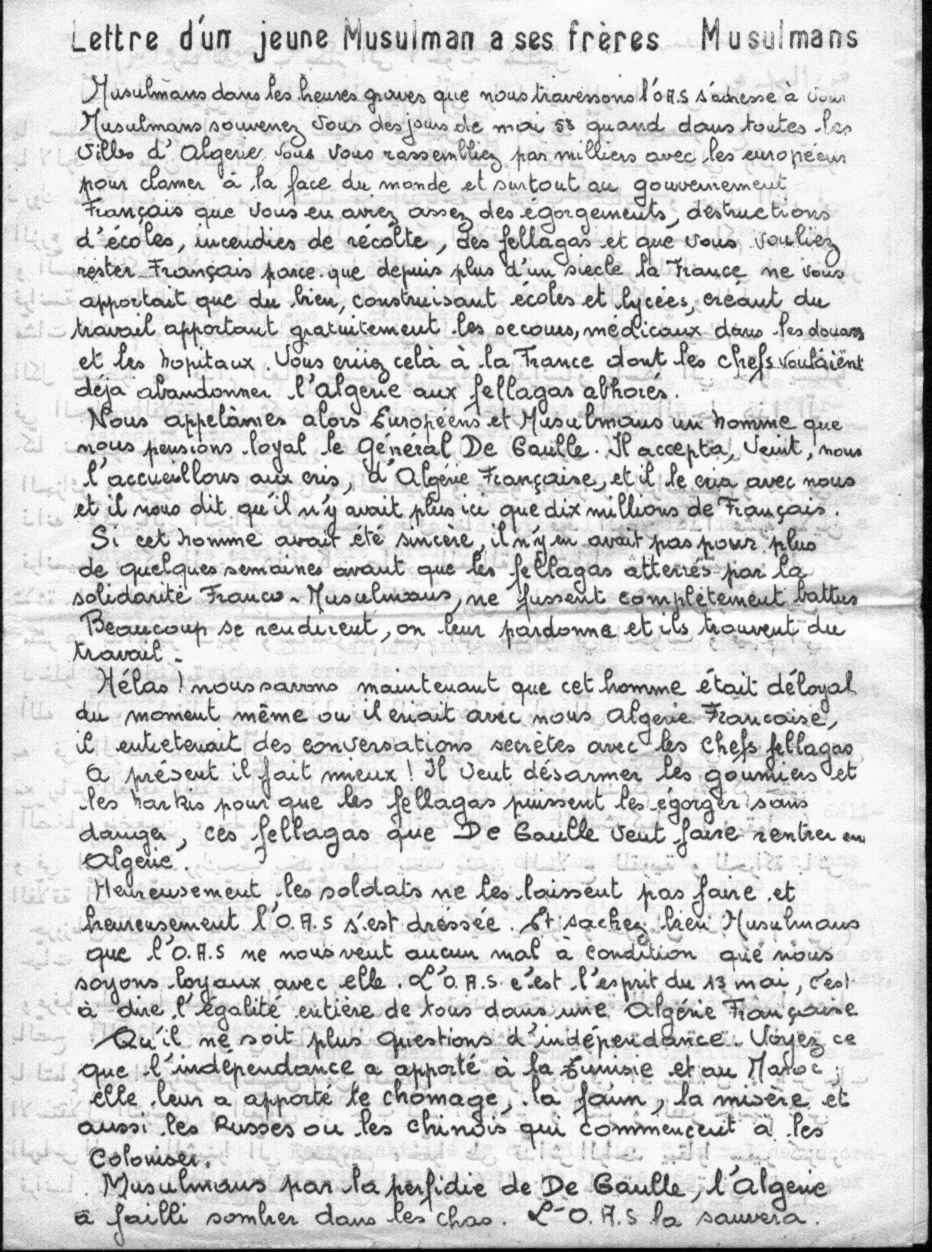 Lettre d'un jeune Musulman a ses frères Musulmans
Musulmans dans les heures graves que nous traversons l'O.A.S s'adresse à vous
Musulmans souvenez vous des jours de mai 58 quand dans toutes les
villes d'Algerie vous vous rassembliez par milliers avec les européens
pour clamer à la face du monde et surtout au gouvernement
Français que vous en aviez assez des égorgements, destructions
d'écoles, incendies de récolte, des fellagas et que vous vouliez
rester Français parce que depuis plus d'un siecle la France ne vous
apportait que du bien, construisant écoles et lycées, créant du
travail apportant gratuitement les secours, médicaux dans les douars
et les hopitaux. Vous criiez celà à la France dont les chefs voulaient
déja abandonner l'algerie aux fellagas abhorés.
Nous appelâmes alors Européens et Musulmans un homme que
nous pensions loyal le Général De Gaulle. Il accepta, vint, nous
l'accueillons aux cris, d'Algérie Française, et il le cria avec nous
et il nous dit qu'il n'y avait plus ici que dix millions de Français.
Si cet homme avait été sincère, il n'y en avait pas pour plus
de quelques semaines avant que les fellagas atterrés par la
solidarité Franco-Musulmans, ne fussent complètement battus
Beaucoup se rendirent, on leur pardonna et ils trouvent du
travail.
Hélas! nous savons maintenant que cet homme était déloyal
du moment même ou il criait avec nous Algerie Francaise,
il entretenait des conversations secrètes avec les chefs fellagas
A présent il fait mieux! Il veut désarmer les goumiers et
les harkis pour que les fellagas puissent les égorger sans
danger, ces fellagas que De Gaulle veut faire rentrer en
Algerie.
Heureusement, les soldats ne les laissent pas faire et
heureusement l'O.A.S s'est dressée. Et sachez bien Musulmans
que l'O.A.S ne nous veut aucun mal à condition que nous
soyons loyaux avec elle. L'O.A.S. c'est l'esprit du 13 mai, c'est
à dire l'égalité entière de tous dans une Algérie Française
Qu'il ne soit plus questions d'indépendance. Voyez ce
que l'indépendance a apporté à la Tunisie et au Maroc;
elle leur a apporté le chomage, la faim, la misère et
aussi les Russes ou les Chinois qui commencent à les
coloniser.
Musulmans par la perfidie de De Gaulle, l'Algerie
a failli sombrer dans les chao. L'O.A.S la sauvera.